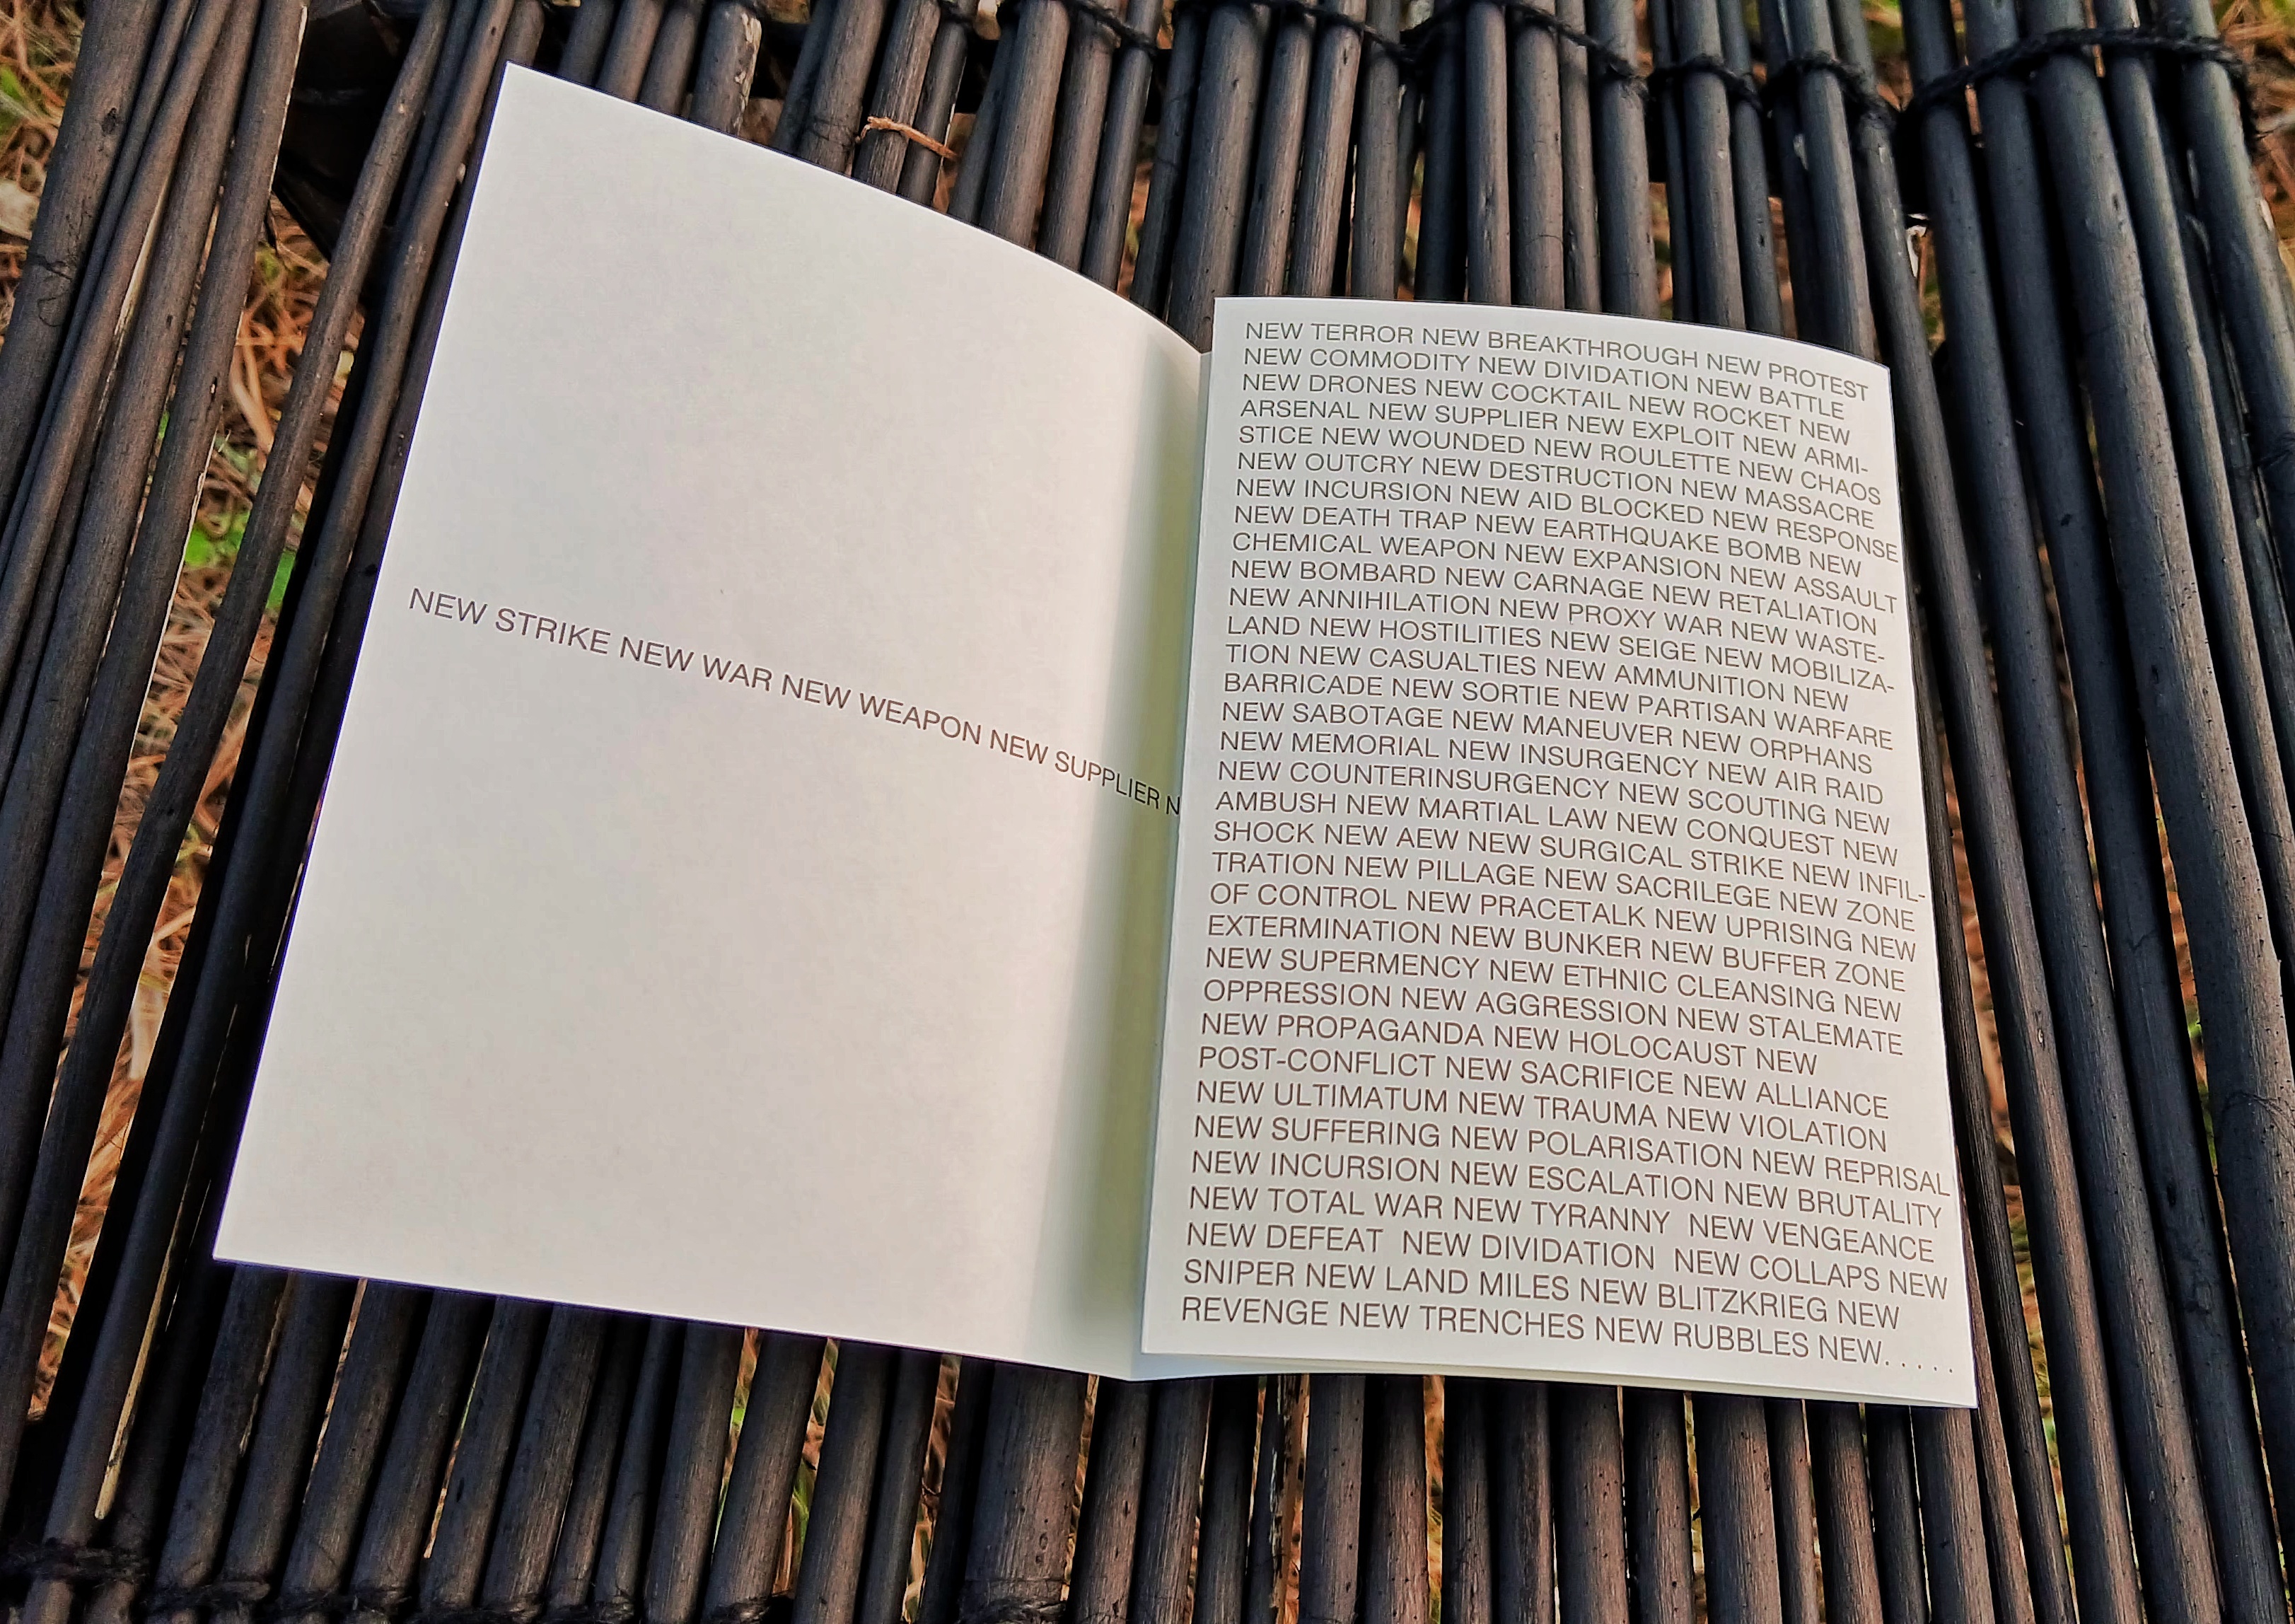 NEW STRIKE NEW WAR NEW WEAPON NEW SUPPLIER N
NEW TERROR NEW BREAKTHROUGH NEW PROTEST
NEW COMMODITY NEW DIVIDATION NEW BATTLE
NEW DRONES NEW COCKTAIL NEW ROCKET NEW
ARSENAL NEW SUPPLIER NEW EXPLOIT NEW ARMI-
STICE NEW WOUNDED NEW ROULETTE NEW CHAOS
NEW OUTCRY NEW DESTRUCTION NEW MASSACRE
NEW INCURSION NEW AID BLOCKED NEW RESPONSE
NEW DEATH TRAP NEW EARTHQUAKE BOMB NEW
CHEMICAL WEAPON NEW EXPANSION NEW ASSAULT
NEW BOMBARD NEW CARNAGE NEW RETALIATION
NEW ANNIHILATION NEW PROXY WAR NEW WASTE-
LAND NEW HOSTILITIES NEW SEIGE NEW MOBILIZA-
TION NEW CASUALTIES NEW AMMUNITION NEW
BARRICADE NEW SORTIE NEW PARTISAN WARFARE
NEW SABOTAGE NEW MANEUVER NEW ORPHANS
NEW MEMORIAL NEW INSURGENCY NEW AIR RAID
NEW COUNTERINSURGENCY NEW SCOUTING NEW
AMBUSH NEW MARTIAL LAW NEW CONQUEST NEW
SHOCK NEW AEW NEW SURGICAL STRIKE NEW INFIL-
TRATION NEW PILLAGE NEW SACRILEGE NEW ZONE
OF CONTROL NEW PRACETALK NEW UPRISING NEW
EXTERMINATION NEW BUNKER NEW BUFFER ZONE
NEW SUPERMENCY NEW ETHNIC CLEANSING NEW
OPPRESSION NEW AGGRESSION NEW STALEMATE
NEW PROPAGANDA NEW HOLOCAUST NEW
POST-CONFLICT NEW SACRIFICE NEW ALLIANCE
NEW ULTIMATUM NEW TRAUMA NEW VIOLATION
NEW SUFFERING NEW POLARISATION NEW REPRISAL
NEW INCURSION NEW ESCALATION NEW BRUTALITY
NEW TOTAL WAR NEW TYRANNY NEW VENGEANCE
NEW DEFEAT NEW DIVIDATION NEW COLLAPS NEW
SNIPER NEW LAND MILES NEW BLITZKRIEG NEW
REVENGE NEW TRENCHES NEW RUBBLES NEW. . . . .